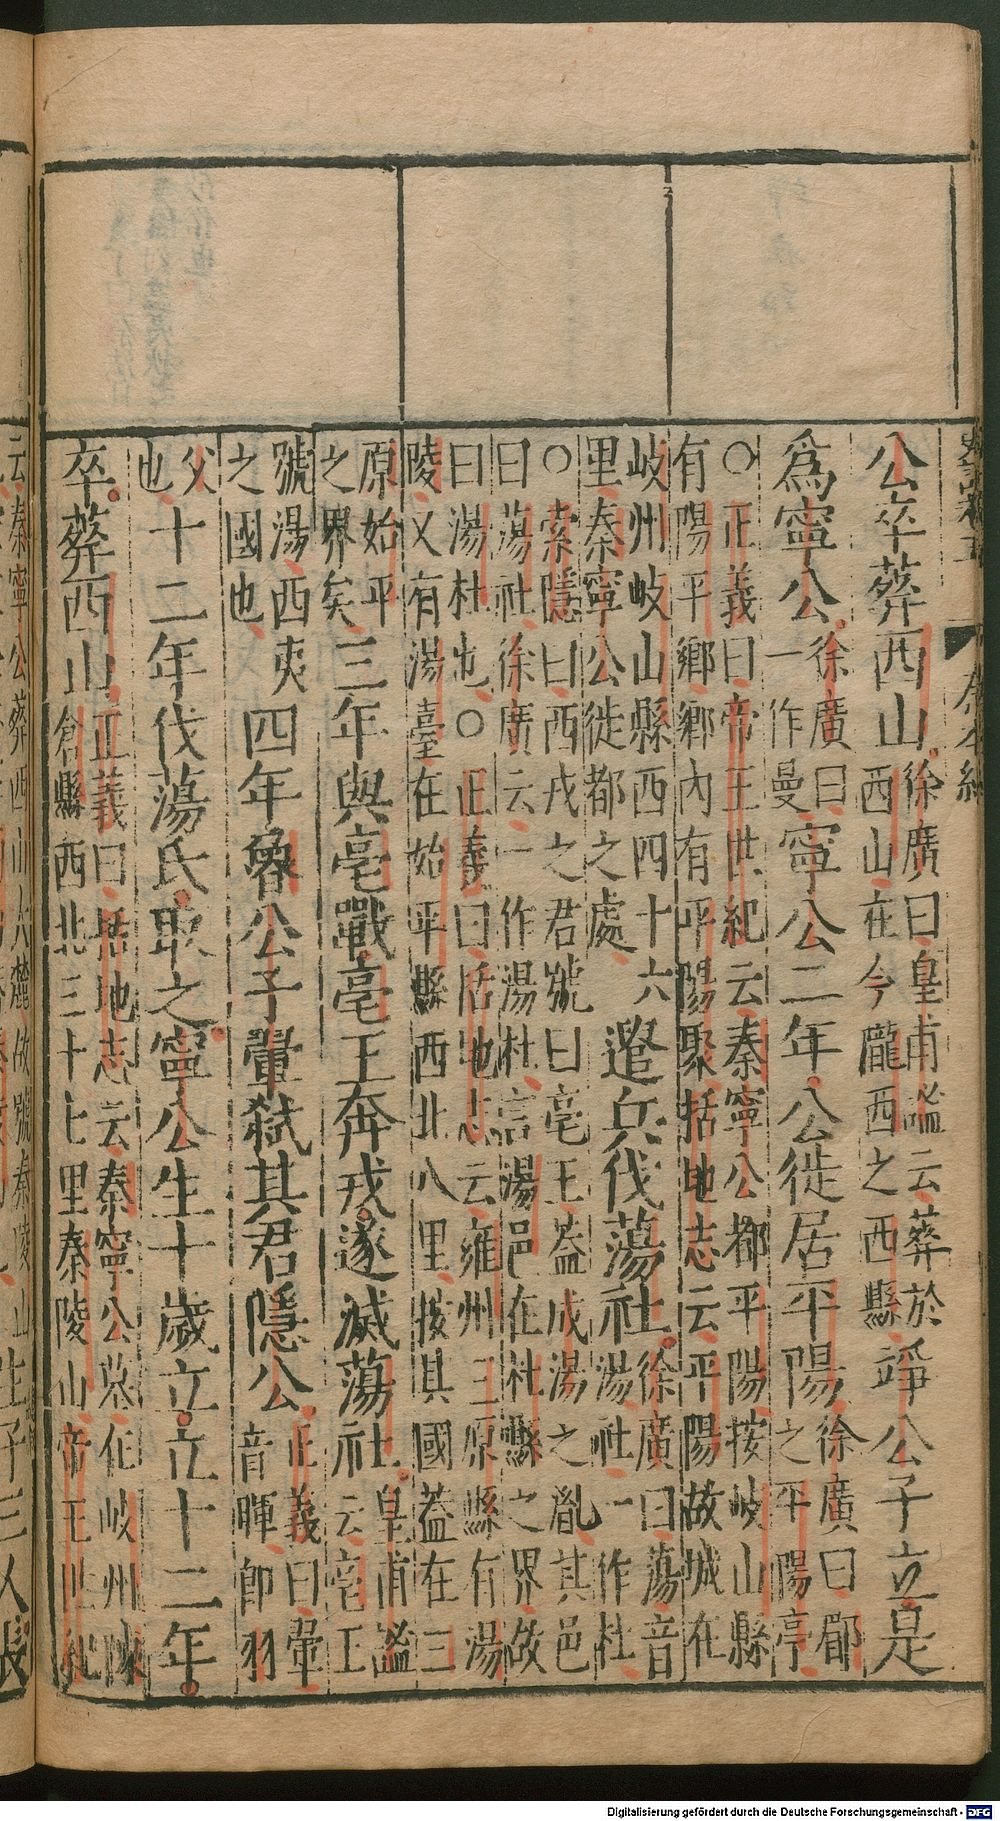 公卒葬西山徐廣曰皇甫謐云葬於西山在今隴西之西縣竫公子立是
爲寧公徐廣曰一作曼寧公二年公徙居平陽徐廣曰郿之平陽亭
○正義曰帝王世紀云秦寧公都平陽按岐山縣
有陽平鄉鄉內有平陽聚括地志云平陽故城在
岐州岐山縣西四十六里秦寧公徙都之處遣兵伐蕩社徐廣曰蕩音湯社一作杜
○索隱曰西戎之君號曰亳王蓋成湯之胤其邑
曰蕩社徐廣云一作湯杜言湯邑在杜縣之界故
曰湯杜也○正義曰括地志云雍州三原縣有湯
陵又有湯臺在始平縣西北八里按其國蓋在三
原始平之界矣三年與亳戰亳王奔戎遂滅蕩社皇甫謐云亳王
號湯西夷之國也四年魯公子翬弒其君隱公正義曰翬音暉即羽
父也十二年伐蕩氏取之寧公生十歲立立十二年
卒葬西山正義曰括地志云秦寧公墓在岐州陳倉縣西北三十七里秦陵山帝王世紀
云秦寧公葬西山大麓故號秦陵山
生子三人長
Digitalisierung gefördert durch die Deutsche Forschungsgemeinschaft - DFG